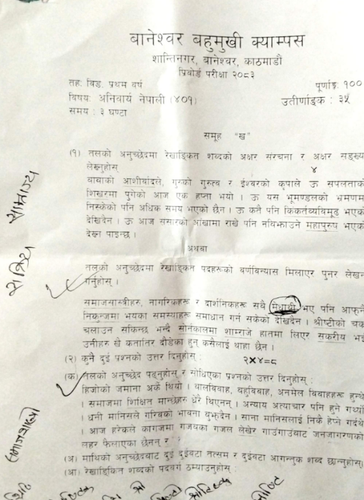 बानेश्वर बहुमुखी क्याम्पस
शान्तिनगर, बानेश्वर, काठमाडौं
प्रिबोर्ड परीक्षा २०८३
तह: वि.ए. प्रथम वर्ष पूर्णाङ्क: १००
विषय: अनिवार्य नेपाली (४०१) उत्तीर्णाङ्क: ३५
समय: ३ घण्टा
समूह "ख"
(१) तलको अनुच्छेदमा रेखाङ्कित शब्दको अक्षर संरचना र अक्षर सङ्ख्या
लेख्नुहोस् ४
बाबाको आशीर्वादले, गुरुको गुरुत्व र ईश्वरको कृपाले ऊ सफलताको
शिखरमा पुगेको आज एक हप्ता भयो । ऊ यस भूमण्डलको भ्रमणमा
निस्केको पनि अधिक समय भएको छैन । ऊ कतै पनि किंकर्तव्यविमूढ भएको
देखिदैन । ऊ आज संसारको आँखामा राखे पनि नबिझाउने महापुरुष भएको
देख्न पाइन्छ ।
अथवा
तलको अनुच्छेदमा रेखाङ्कित पदहरूको वर्णविन्यास मिलाएर पुनर लेखन
गर्नुहोस् ।
समाजशास्त्रीहरू, नागरिकहरू र दार्शनिकहरू सबै मेधाथी भए पनि आफ्नै
निकुन्जमा भयका समस्याहरू समाधान गर्न सकेको देखिदैन । श्रीष्टीको चक्र
चलाउन सकिन्छ भन्दै सोतकालमा शाम्राजे हातमा लिएर सक्रीय भई
उनीहरू खै कतातिर दौडेका हुन् कसैलाई थाहा छैन ।
(२) कुनै दुई प्रश्नको उत्तर दिनुहोस् : २×४=८
(क) तलको अनुच्छेद पढ्नुहोस् र सोधिएका प्रश्नको उत्तर दिनुहोस् :
हिजोको जमाना अर्कै थियो । बालविवाह, बहुविवाह, अनमेल विवाहहरू हुन्थे
। समाजमा शिक्षित मान्छेहरू धेरै थिएनन् । अन्याय अत्याचार पनि हुने गर्थ्यो
। धनी मानिसले गरिबको भावना बुझ्दैन । साना मानिसलाई निकै हेप्ने गर्दथे
। आज हरेक कागजमा गजबका गजल लेखेर गाउँगाउँमा जनजागरणका
लहर फैलाएका छन् ।
(अ) माथिको अनुच्छेदबाट दुई दुईवटा तत्सम र दुईवटा आगन्तुक शब्द छान्नुहोस् ।
(आ) रेखाङ्कित शब्दको पदवर्ग ठम्याउनुहोस् ।
साम्राज्य
सक्रिय